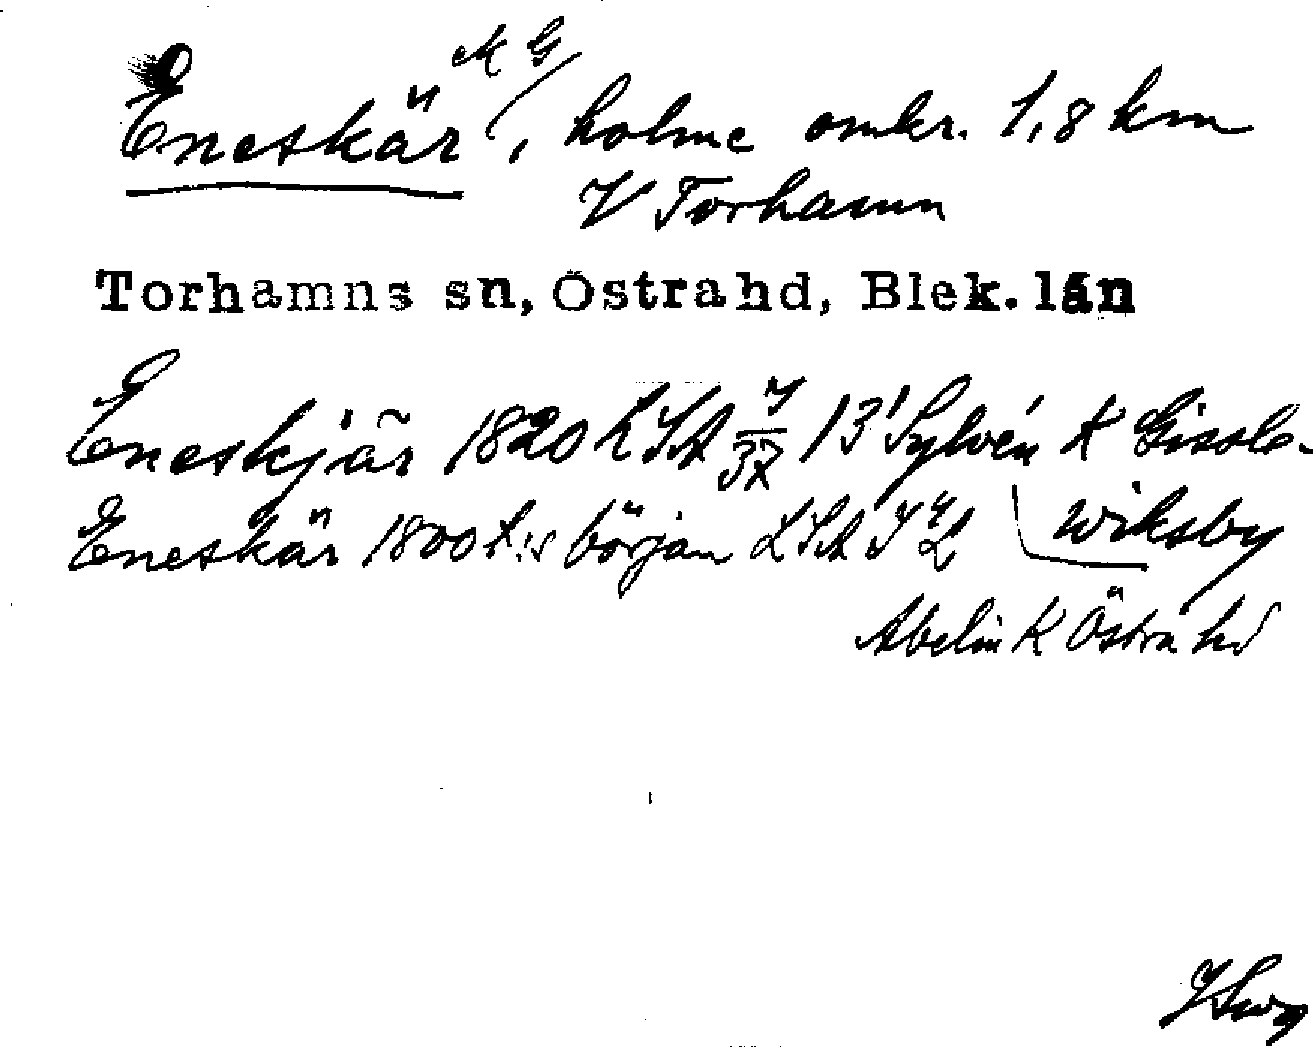 MG
Eneskär, holme omkr. 1,8 km
V Torhamn
Torhamns sn, Östra hd, Blek. län
Eneskjär 1820 LSA 7/37 13 Sylvén K Gisslewiksby
Eneskär 1800 t:s början LSA
Abelin K Östra hd